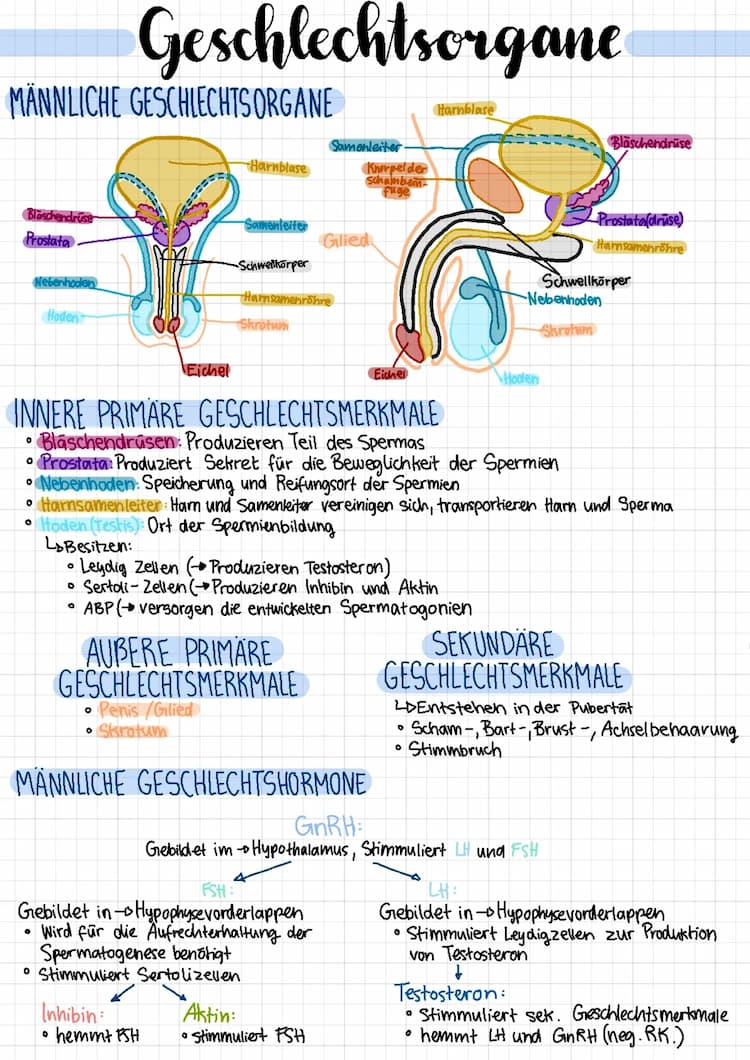 Geschlechtsorgane
MÄNNLICHE GESCHLECHTSORGANE
Harnblase
Bläschendrüse
Prostata
Samenleiter
Schwellkörper
Nebenhoden
Harnsamenröhre
Hoden
Skrotum
Eichel
Harnblase
Samenleiter
Bläschendrüse
Knorpel der
Schambein-
fuge
Prostata(drüse)
Glied
Harnsamenröhre
Schwellkörper
Nebenhoden
Skrotum
Eichel
Hoden
INNERE PRIMÄRE GESCHLECHTSMERKMALE
• Bläschendrüsen: Produzieren Teil des Spermas
• Prostata: Produziert Sekret für die Beweglichkeit der Spermien
• Nebenhoden: Speicherung und Reifungsort der Spermien
• Harnsamenleiter: Harn und Samenleiter vereinigen sich, transportieren Harn und Sperma
• Hoden (Testis): Ort der Spermienbildung
↳ Besitzen:
• Leydig Zellen (→ Produzieren Testosteron)
• Sertoli-Zellen (→ Produzieren Inhibin und Aktin
• ABP (→ versorgen die entwickelten Spermatogonien
ÄUßERE PRIMÄRE
GESCHLECHTSMERKMALE
• Penis / Glied
• Skrotum
SEKUNDÄRE
GESCHLECHTSMERKMALE
↳ Entstehen in der Pubertät
• Scham-, Bart-, Brust-, Achselbehaarung
• Stimmbruch
MÄNNLICHE GESCHLECHTSHORMONE
GnRH:
Gebildet im → Hypothalamus, Stimmuliert LH und FSH
FSH:
Gebildet in → Hypophysevorderlappen
• Wird für die Aufrechterhaltung der
Spermatogenese benötigt
• Stimmuliert Sertolizellen
Inhibin:
• hemmt FSH
Aktin:
• stimmuliert FSH
LH:
Gebildet in → Hypophysevorderlappen
• Stimmuliert Leydigzellen zur Produktion
von Testosteron
↓
Testosteron:
• Stimmuliert sek. Geschlechtsmerkmale
• hemmt LH und GnRH (neg. RK.)